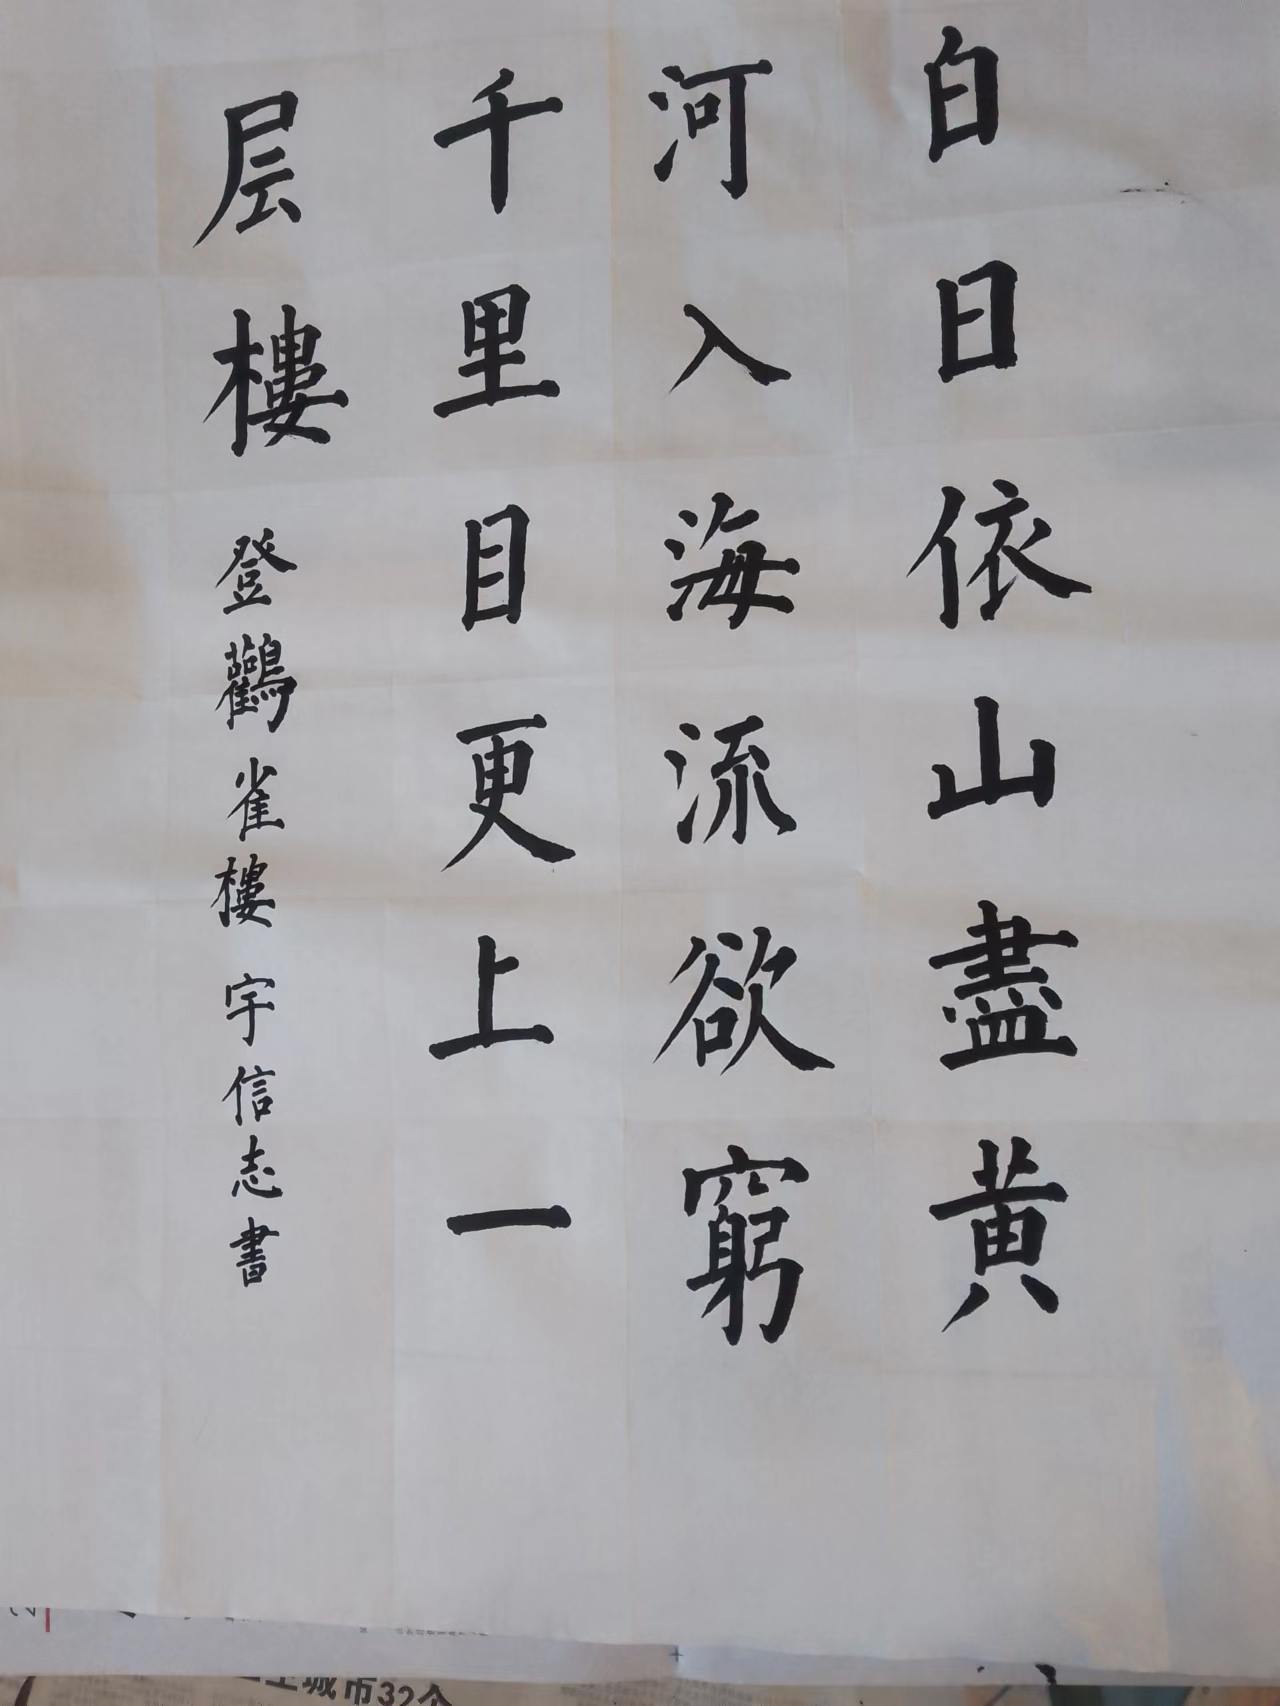 白日依山盡黄
河入海流欲窮
千里目更上一
层樓 登鸛雀樓 宇信志書
市32个